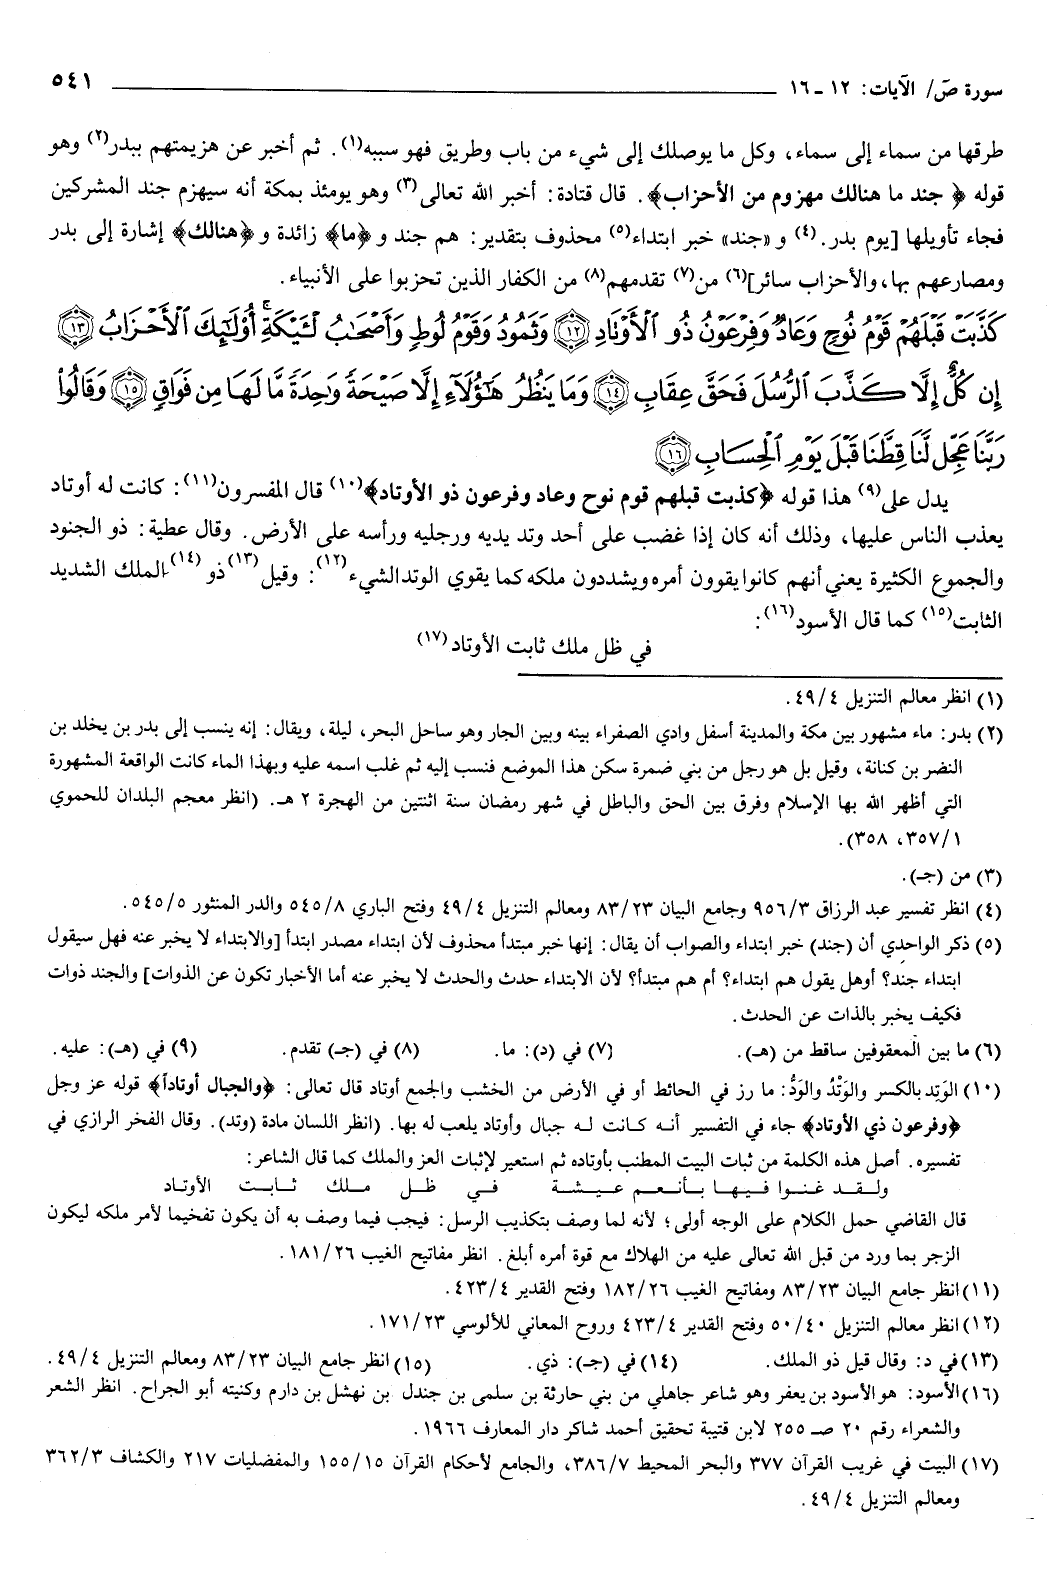 سورة صٓ/ الآيات: ١٢ ـ ١٦
٥٤١
طرقها من سماء إلى سماء، وكل ما يوصلك إلى شيء من باب وطريق فهو سببه(١). ثم أخبر عن هزيمتهم ببدر(٢) وهو
قوله ﴿ جند ما هنالك مهزوم من الأحزاب﴾. قال قتادة: أخبر الله تعالى(٣) وهو يومئذ بمكة أنه سيهزم جند المشركين
فجاء تأويلها [يوم بدر.(٤) و «جند» خبر ابتداء(٥) محذوف بتقدير: هم جند و ﴿ما﴾ زائدة و ﴿هنالك﴾ إشارة إلى بدر
ومصارعهم بها، والأحزاب سائر](٦) من(٧) تقدمهم(٨) من الكفار الذين تحزبوا على الأنبياء.
كَذَّبَتْ قَبْلَهُمْ قَوْمُ نُوحٍ وَعَادٌ وَفِرْعَوْنُ ذُو ٱلْأَوْتَادِ ﴿١٢﴾ وَثَمُودُ وَقَوْمُ لُوطٍ وَأَصْحَٰبُ لْـَٔيْكَةِ ۚ أُو۟لَٰٓئِكَ ٱلْأَحْزَابُ ﴿١٣﴾
إِن كُلٌّ إِلَّا كَذَّبَ ٱلرُّسُلَ فَحَقَّ عِقَابِ ﴿١٤﴾ وَمَا يَنظُرُ هَٰٓؤُلَآءِ إِلَّا صَيْحَةً وَٰحِدَةً مَّا لَهَا مِن فَوَاقٍ ﴿١٥﴾ وَقَالُوا۟
رَبَّنَا عَجِّل لَّنَا قِطَّنَا قَبْلَ يَوْمِ ٱلْحِسَابِ ﴿١٦﴾
يدل على(٩) هذا قوله ﴿كذبت قبلهم قوم نوح وعاد وفرعون ذو الأوتاد﴾(١٠) قال المفسرون(١١): كانت له أوتاد
يعذب الناس عليها، وذلك أنه كان إذا غضب على أحد وتد يديه ورجليه ورأسه على الأرض. وقال عطية: ذو الجنود
والجموع الكثيرة يعني أنهم كانوا يقوون أمره ويشددون ملكه كما يقوي الوتد الشيء(١٢): وقيل(١٣) ذو(١٤) الملك الشديد
الثابت(١٥) كما قال الأسود(١٦):
في ظل ملك ثابت الأوتاد(١٧)
(١) انظر معالم التنزيل ٤/ ٤٩.
(٢) بدر: ماء مشهور بين مكة والمدينة أسفل وادي الصفراء بينه وبين الجار وهو ساحل البحر، ليلة، ويقال: إنه ينسب إلى بدر بن يخلد بن
النضر بن كنانة، وقيل بل هو رجل من بني ضمرة سكن هذا الموضع فنسب إليه ثم غلب اسمه عليه وبهذا الماء كانت الواقعة المشهورة
التي أظهر الله بها الإسلام وفرق بين الحق والباطل في شهر رمضان سنة اثنتين من الهجرة ٢ هـ. (انظر معجم البلدان للحموي
١/ ٣٥٧، ٣٥٨).
(٣) من (جـ).
(٤) انظر تفسير عبد الرزاق ٣/ ٩٥٦ وجامع البيان ٢٣/ ٨٣ ومعالم التنزيل ٤/ ٤٩ وفتح الباري ٨/ ٥٤٥ والدر المنثور ٥/ ٥٤٥.
(٥) ذكر الواحدي أن (جند) خبر ابتداء والصواب أن يقال: إنها خبر مبتدأ محذوف لأن ابتداء مصدر ابتدأ [والابتداء لا يخبر عنه فهل سيقول
ابتداء جند؟ أوهل يقول هم ابتداء؟ أم هم مبتدأ؟ لأن الابتداء حدث والحدث لا يخبر عنه أما الأخبار تكون عن الذوات] والجند ذوات
فكيف يخبر بالذات عن الحدث.
(٦) ما بين المعقوفين ساقط من (هـ). (٧) في (د): ما. (٨) في (جـ) تقدم. (٩) في (هـ): عليه.
(١٠) الوَتِد بالكسر والوَتْدُ والوَدُّ: ما رز في الحائط أو في الأرض من الخشب والجمع أوتاد قال تعالى: ﴿والجبال أوتاداً﴾ قوله عز وجل
﴿وفرعون ذي الأوتاد﴾ جاء في التفسير أنـه كـانت لـه حبال وأوتاد يلعب له بها. (انظر اللسان مادة (وتد). وقال الفخر الرازي في
تفسيره. أصل هذه الكلمة من ثبات البيت المطنب بأوتاده ثم استعير لإثبات العز والملك كما قال الشاعر:
ولـقـد غـنـوا فـيـهـا بـأنـعـم عـيـشـة فـي ظـل مـلـك ثـابـت الأوتـاد
قال القاضي حمل الكلام على الوجه أولى؛ لأنه لما وصف بتكذيب الرسل: فيجب فيما وصف به أن يكون تفخيما لأمر ملكه ليكون
الزجر بما ورد من قبل الله تعالى عليه من الهلاك مع قوة أمره أبلغ. انظر مفاتيح الغيب ٢٦/ ١٨١.
(١١) انظر جامع البيان ٢٣/ ٨٣ ومفاتيح الغيب ٢٦/ ١٨٢ وفتح القدير ٤/ ٤٢٣.
(١٢) انظر معالم التنزيل ٤٠/ ٥٠ وفتح القدير ٤/ ٤٢٣ وروح المعاني للألوسي ٢٣/ ١٧١.
(١٣) في د: وقال قيل ذو الملك. (١٤) في (جـ): ذي. (١٥) انظر جامع البيان ٢٣/ ٨٣ ومعالم التنزيل ٤/ ٤٩.
(١٦) الأسود: هو الأسود بن يعفر وهو شاعر جاهلي من بني حارثة بن سلمى بن جندل بن نهشل بن دارم وكنيته أبو الجراح. انظر الشعر
والشعراء رقم ٢٠ صـ ٢٥٥ لابن قتيبة تحقيق أحمد شاكر دار المعارف ١٩٦٦.
(١٧) البيت في غريب القرآن ٣٧٧ والبحر المحيط ٧/ ٣٨٦، والجامع لأحكام القرآن ١٥/ ١٥٥ والمفضليات ٢١٧ والكشاف ٣/ ٣٦٢
ومعالم التنزيل ٤/ ٤٩.